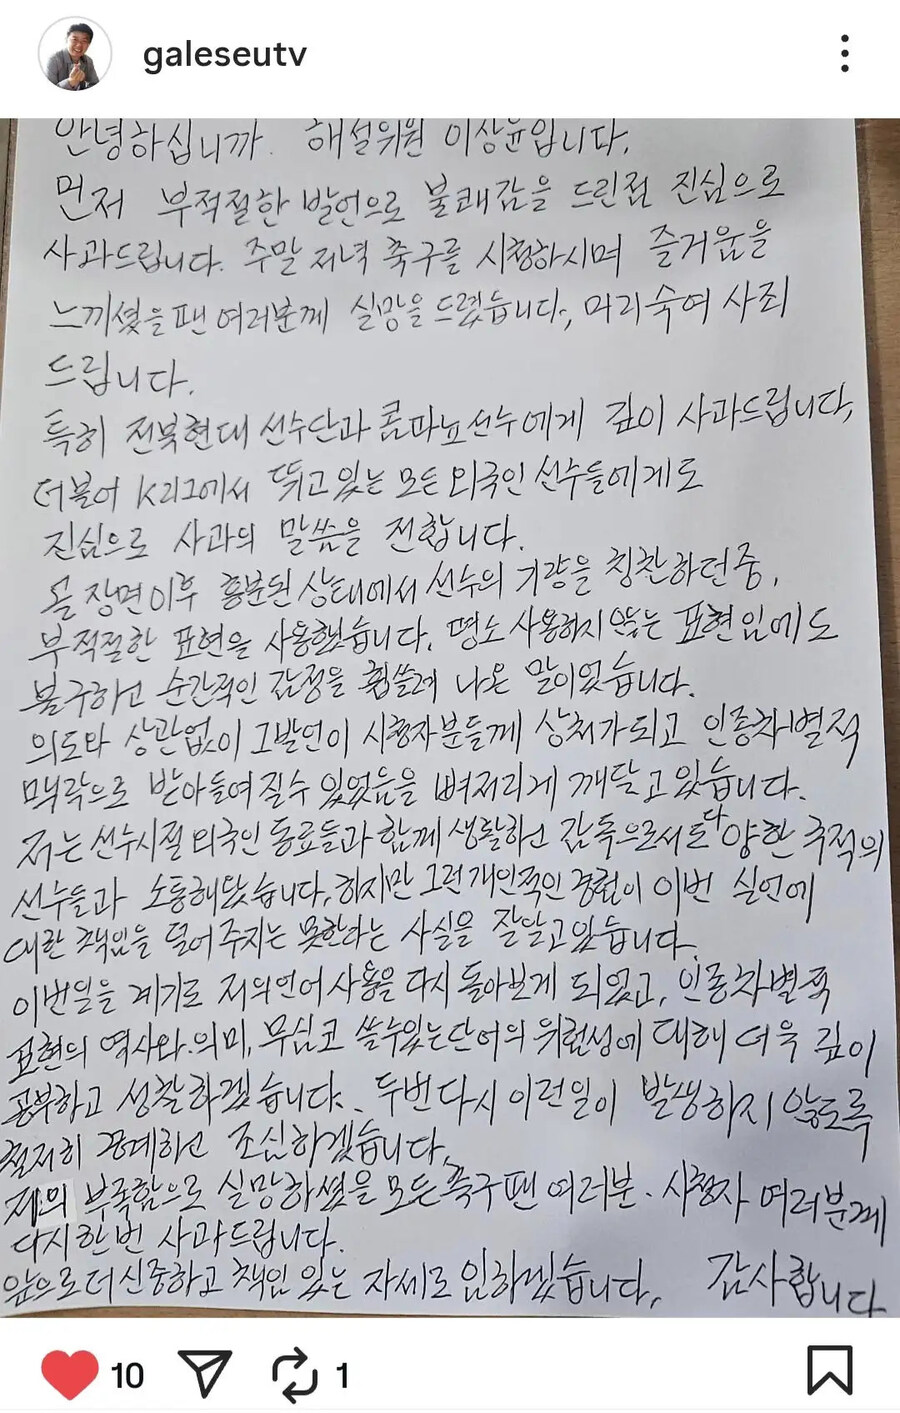 galeseutv
안녕하십니까. 해설위원 이상윤입니다.
먼저 부적절한 발언으로 불쾌감을 드린점 진심으로
사과드립니다. 주말 저녁 축구를 시청하시며 즐거움을
느끼셨을 팬 여러분께 실망을 드렸습니다, 머리숙여 사죄
드립니다.
특히 전북현대 선수단과 콤파뇨선수에게 깊이 사과드립니다,
더불어 K리그에서 뛰고 있는 모든 외국인 선수들에게도
진심으로 사과의 말씀을 전합니다.
골 장면이후 흥분된 상태에서 선수의 기량을 칭찬하던 중,
부적절한 표현을 사용했습니다. 평소 사용하지 않는 표현임에도
불구하고 순간적인 감정을 휩쓸려 나온 말이었습니다.
의도와 상관없이 그발언이 시청자분들께 상처가되고 인종차별적
맥락으로 받아들여질수 있었음을 뼈저리게 깨닫고 있습니다.
저는 선수시절 외국인 동료들과 함께 생활하고 감독으로서도 다양한 국적의
선수들과 소통해왔습니다, 하지만 그런 개인적인 경험이 이번 실언에
대한 책임을 덜어 주지는 못한다는 사실을 잘알고있습니다.
이번일을 계기로 저의언어 사용을 다시 돌아보게 되었고, 인종차별적
표현의 역사와 의미, 무심코 쓸수있는단어의 위험성에 대해 더욱 깊이
공부하고 성찰하겠습니다. 두번다시 이런일이 발생하지 않도록
철저히 경계하고 조심하겠습니다,
저의 부족함으로 실망하셨을 모든 축구팬 여러분. 시청자 여러분께
다시한번 사과드립니다.
앞으로더신중하고 책임 있는 자세로 임하겠습니다, 감사합니다
10
1